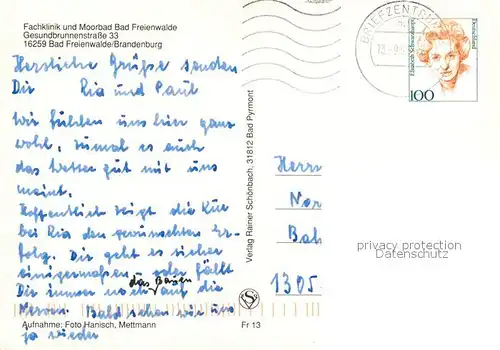 Fachklinik und Moorbad Bad Freienwalde
Gesundbrunnenstraße 33
16259 Bad Freienwalde/Brandenburg
Herzliche Grüße senden
Dir Ria und Paul
Wir fühlen uns hier ganz
wohl, zumal es auch
das Wetter gut mit uns
meint.
Hoffentlich zeigt die Kur
bei Ria den gewünschten Er-
folg. Dir geht es sicher
einigermaßen oder fällt
das
Dir immer noch auf die
Nerven. Bald sehen wir uns
ja wieder
Aufnahme: Foto Hanisch, Mettmann
Fr 13
Verlag Rainer Schönbach, 31812 Bad Pyrmont
S
BRIEFZENTRUM
Elisabeth Schwarzhaupt
Deutschland
100
Herrn
Nor
Bah
1305
privacy protection
Datenschutz